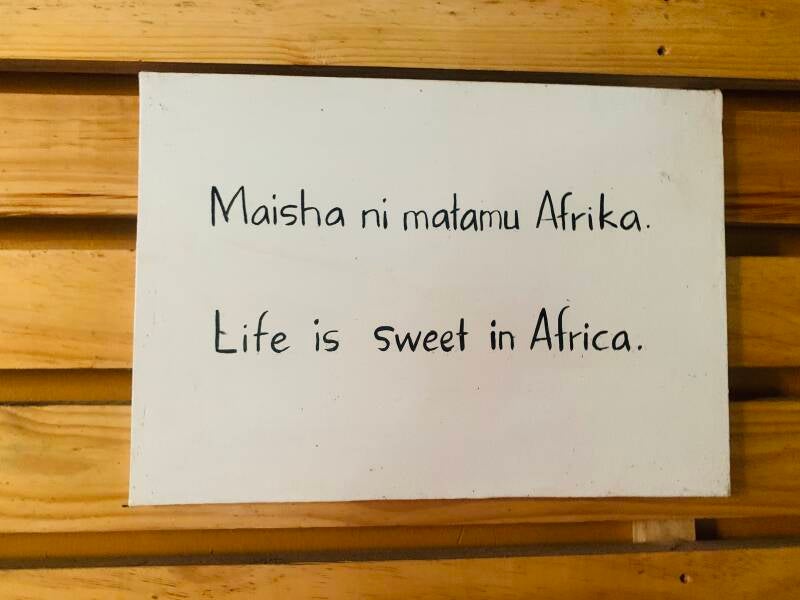 Maisha ni matamu Afrika.
Life is sweet in Africa.